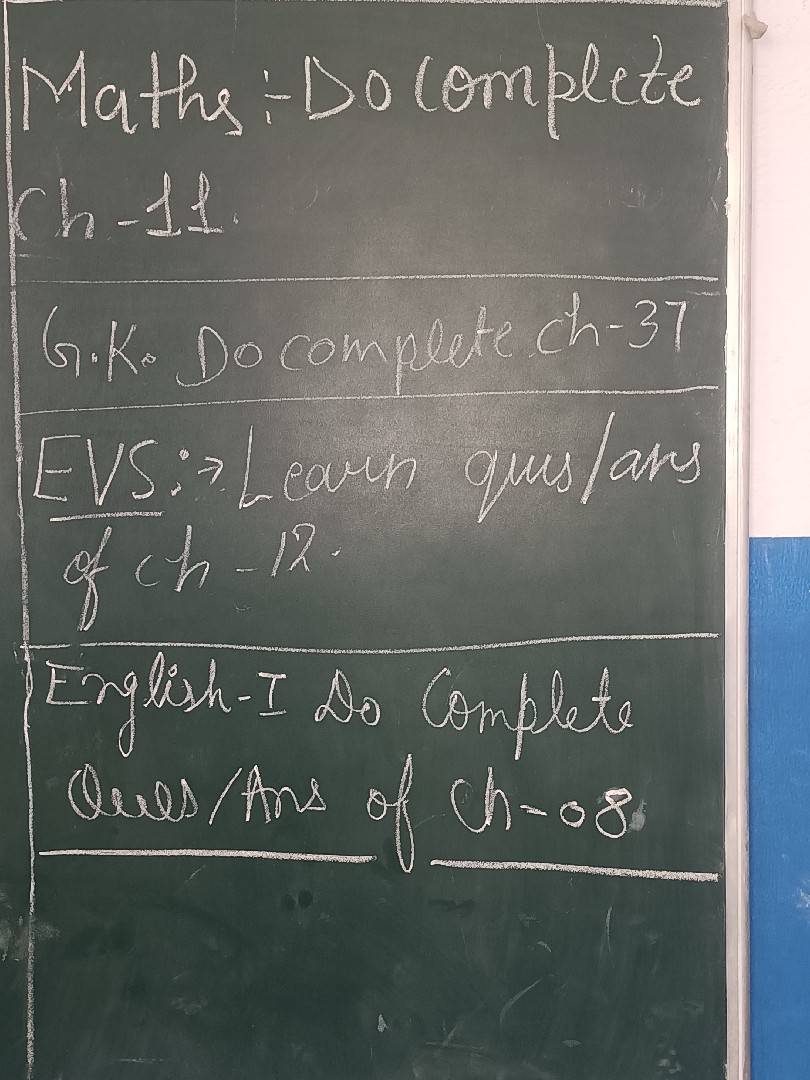 Maths :- Do complete
Ch - 11.
G.K. Do complete ch-37
EVS :-> Learn ques/ans
of ch - 12.
English-I Do Complete
Ques/Ans of Ch-08